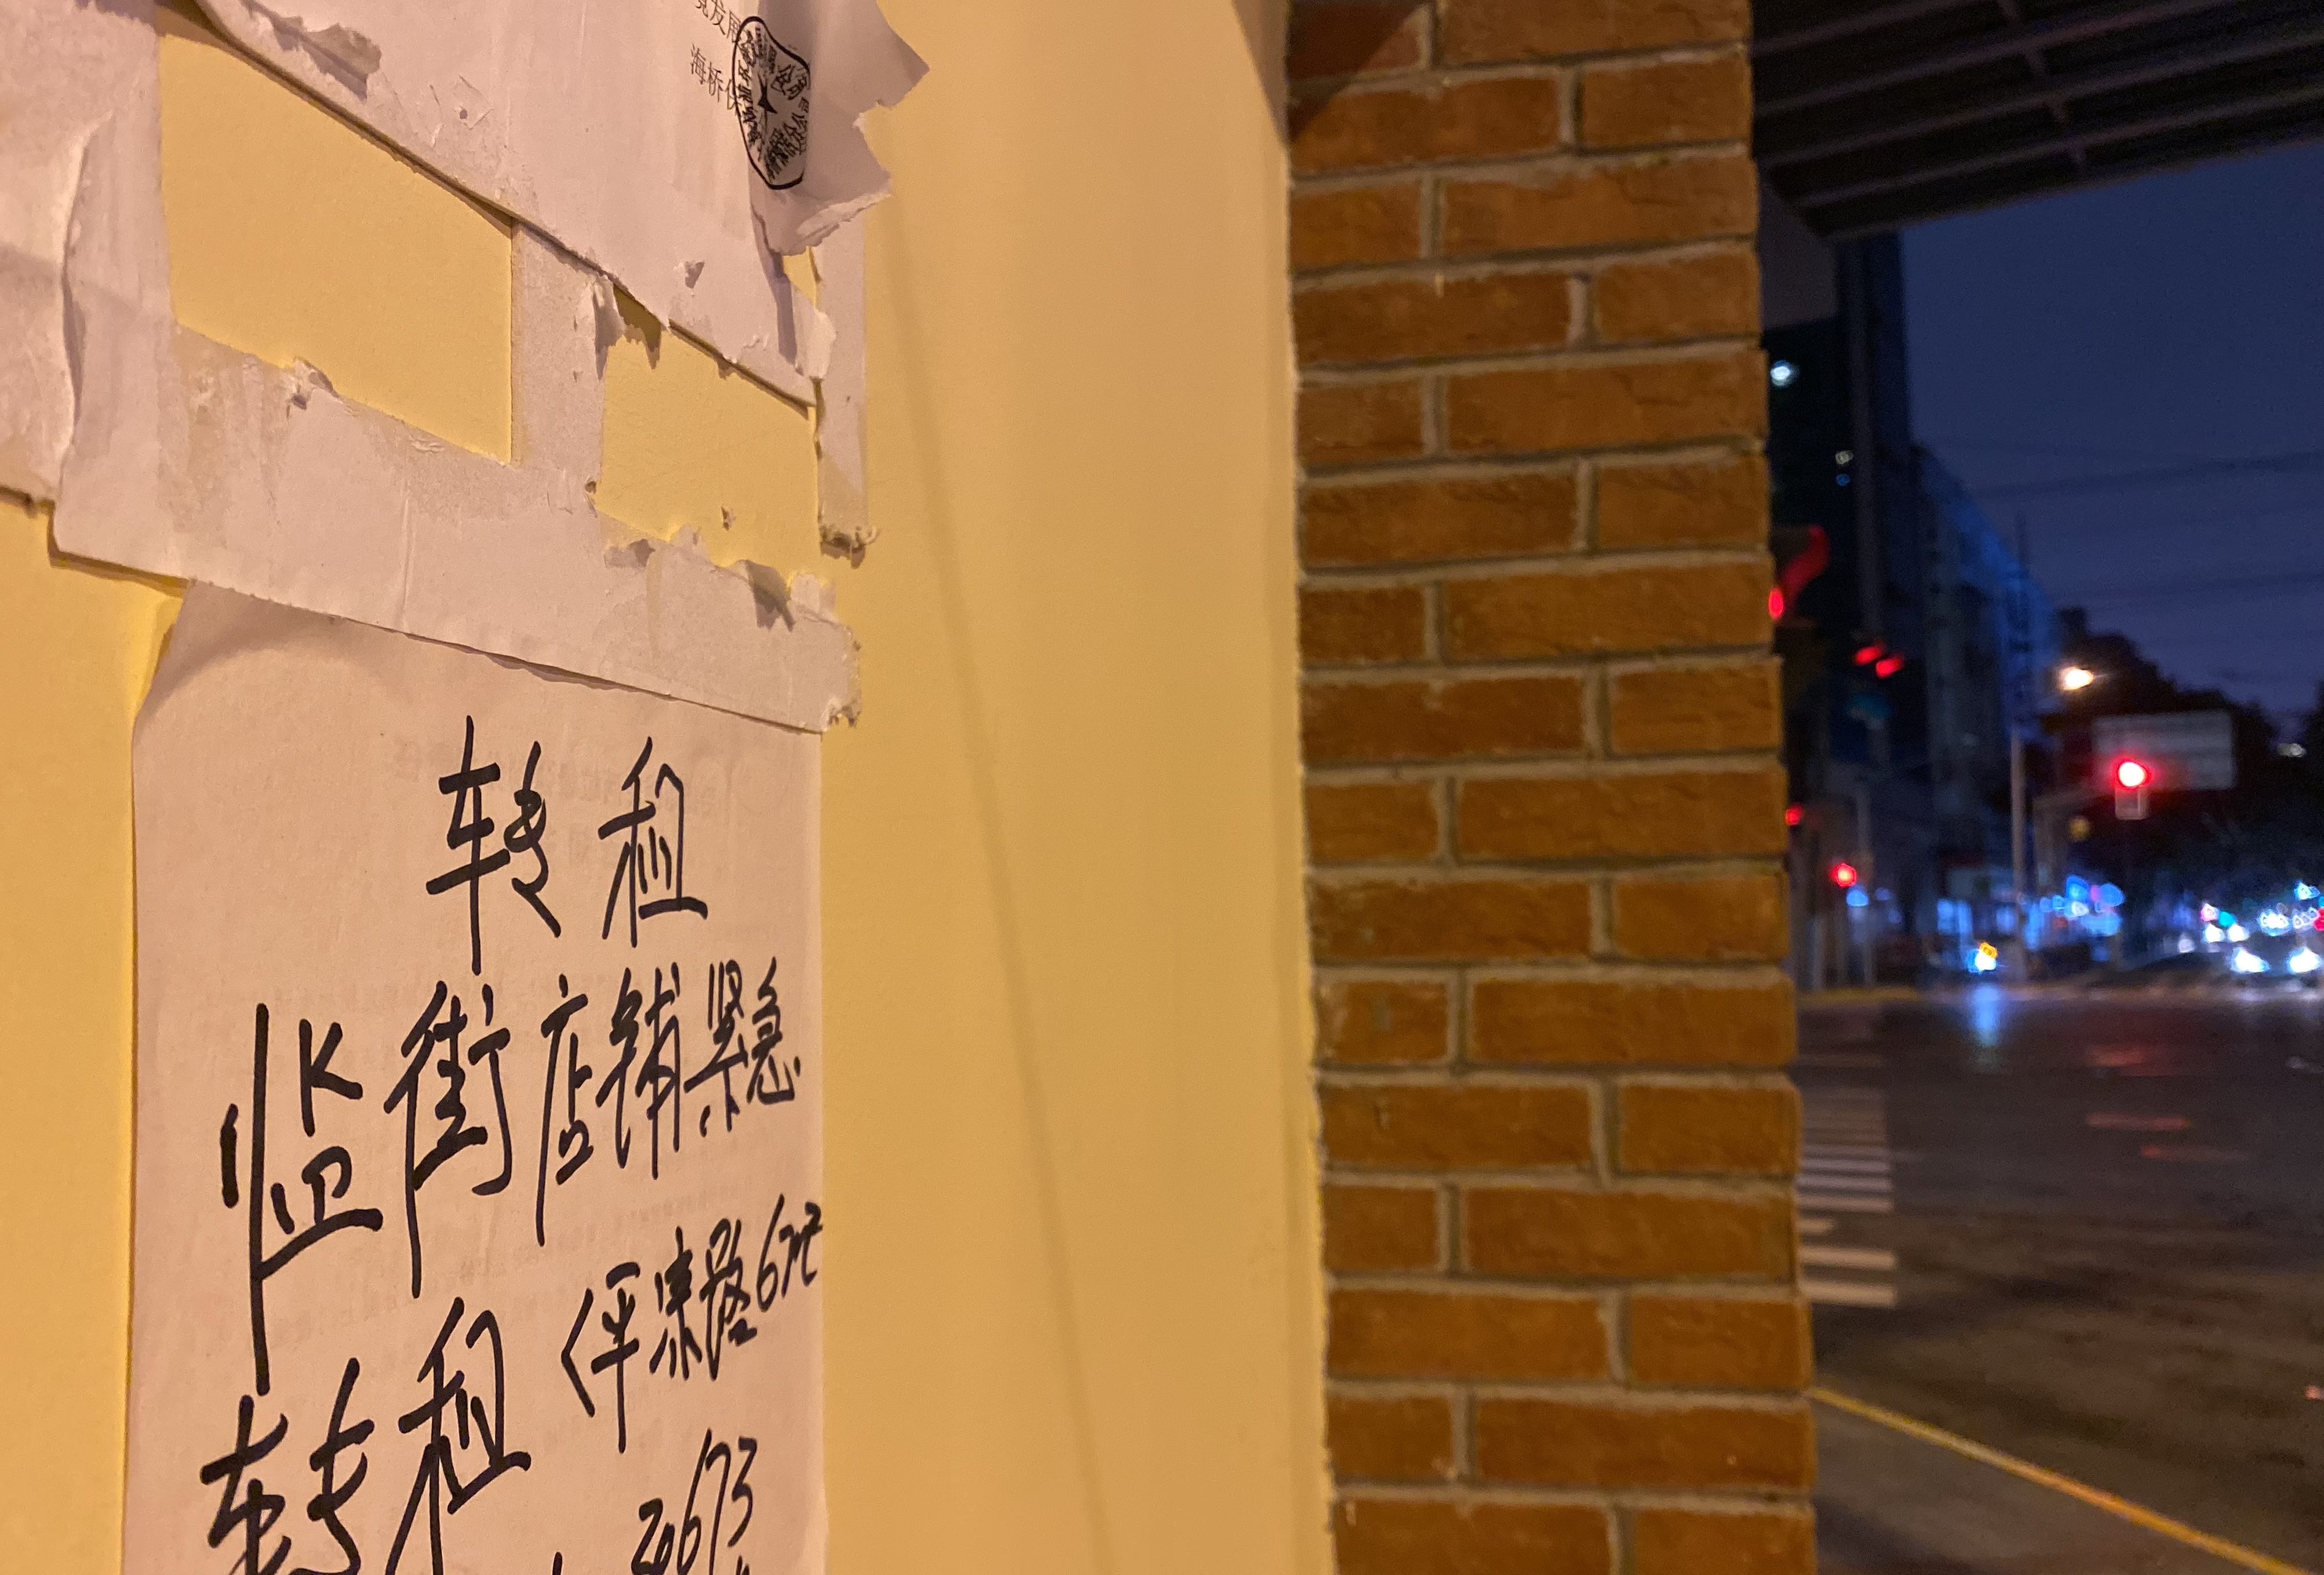 发展
海桥
转租
临街店铺紧急
转租
平 路67m²
20673